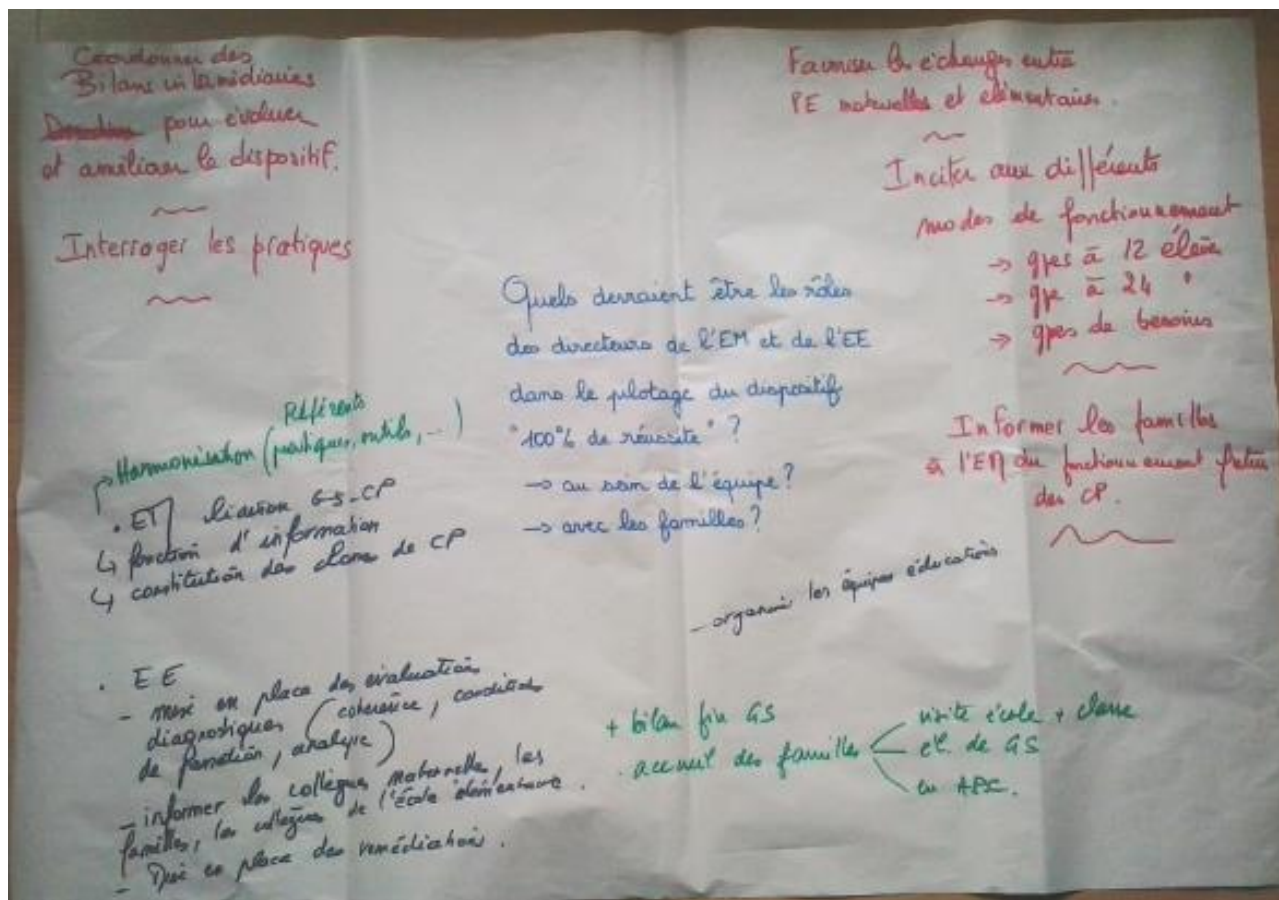 Coordonner des
Bilans intermédiaires
pour évaluer
et améliorer le dispositif.
Interroger les pratiques
Favoriser les échanges entre
PE maternelles et élémentaires.
Inciter aux différents
modes de fonctionnement
→ gpes à 12 élèves
→ gpe à 24 "
→ gpes de besoins
Informer les familles
à l'EM du fonctionnement futur
des CP.
Quels devraient être les rôles
des directeurs de l'EM et de l'EE
dans le pilotage du dispositif
"100% de réussite" ?
→ au sein de l'équipe ?
→ avec les familles ?
Référents
Harmonisation (pratiques, outils, ...)
. EM liaison GS-CP
↳ fonction d'information
↳ constitution des classes de CP
. EE
- mise en place des évaluations
diagnostiques (cohérence, conditions
de passation, analyse)
- informer les collègues maternelle, les
familles, les collègues de l'école élémentaire.
- Mise en place des remédiations.
- organiser les équipes éducatives
+ bilan fin GS
. accueil des familles
visite école + classe
él. de GS
en APC.